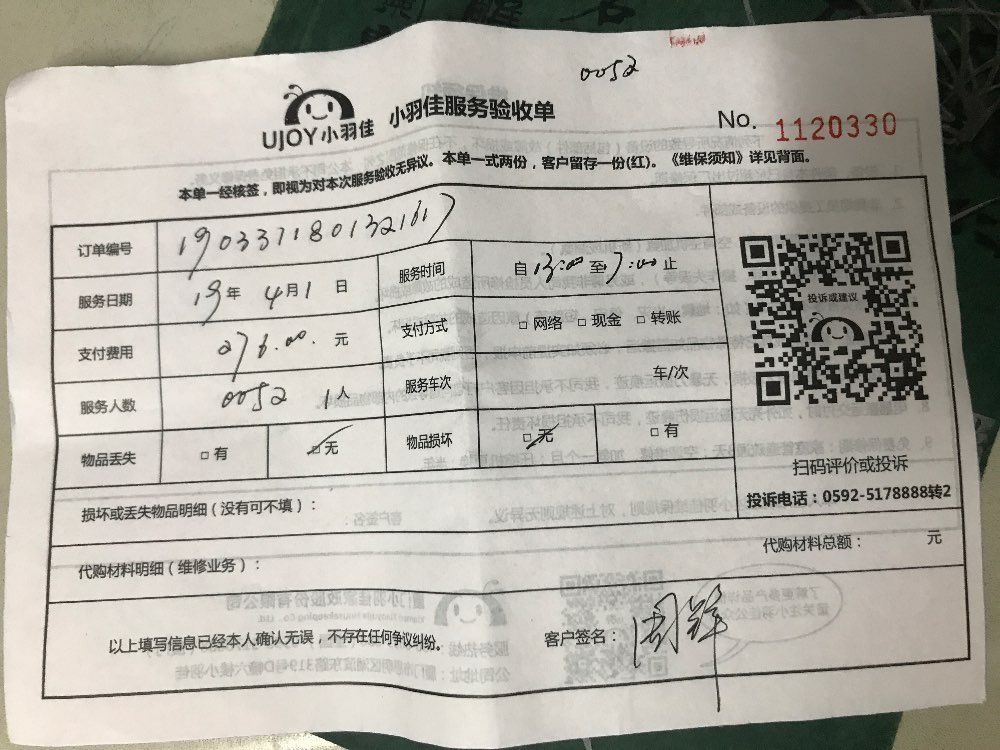 0052
UJOY小羽佳 小羽佳服务验收单 No. 1120330
本单一经核签，即视为对本次服务验收无异议。本单一式两份，客户留存一份(红)。《维保须知》详见背面。
订单编号
服务日期 19年 4月1日 服务时间 自13:00至17:00止
支付费用 276.00. 元 支付方式 □ 网络 □ 现金 □ 转账
服务人数 0052 1人 服务车次 车/次
物品丢失 □ 有 □ 无 物品损坏 □ 无 □ 有
投诉或建议
扫码评价或投诉
投诉电话：0592-5178888转2
损坏或丢失物品明细（没有可不填）：
代购材料明细（维修业务）： 代购材料总额： 元
以上填写信息已经本人确认无误，不存在任何争议纠纷。 客户签名：